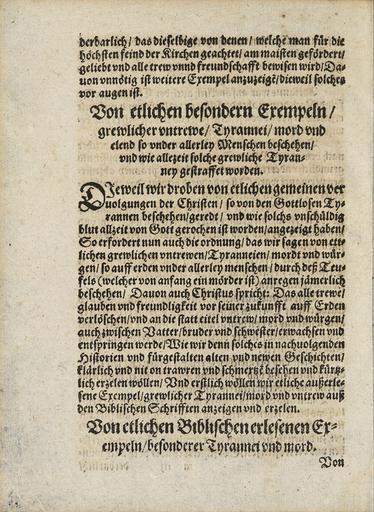 derbarlich / das dieselbige von denen / welche man für die
höchsten feind der Kirchen geachtet / am maisten gefördert /
geliebt vnd alle trew vnnd freundschafft bewisen wird / Da-
uon vnnötig ist weitere Exempel anzuzeigẽ / dieweil solches
vor augen ist.
Von etlichen besondern Exempeln /
grewlicher vntrewe / Tyrannei / mord vnd
elend so vnder allerley Menschen beschehen /
vnd wie allezeit solche grewliche Tyran-
ney gestraffet worden.
DIeweil wir droben von etlichen gemeinen ver
uolgungen der Christen / so von den Gottlosen Ty-
rannen beschehen / geredt / vnd wie solchs vnschüldig
blut allzeit von Gott gerochen ist worden / angezeigt haben /
So erfordert nun auch die ordnung / das wir sagen von ett-
lichen grewlichen vntrewen / Tyranneien / mordt vnd wür-
gen / so auff erden vnder allerley menschen / durch deß Teu-
fels (welcher von anfang ein mörder ist) anregen jämerlich
beschehen / Dauon auch Christus spricht: Das alle trewe /
glauben vnd freundligkeit vor seiner zukunfft auff Erden
verlöschen / vnd an die statt eitel vntrew / mord vnd würgen /
auch zwischen Vatter / bruder vnd schwester / erwachsen vnd
entspringen werde / Wie wir denn solches in nachuolgenden
Historien vnd fürgestalten alten vnd newen Geschichten /
klärlich vnd nit on trawren vnd schmertzẽ besehen vnd kürtz-
lich erzelen wöllen / Vnd erstlich wöllen wir etliche außerle-
sene Exempel / grewlicher Tyrannei / mord vnd vntrew auß
den Biblischen Schrifften anzeigen vnd erzelen.
Von etlichen Biblischen erlesenen Ex-
empeln / besonderer Tyrannei vnd mord.
Von